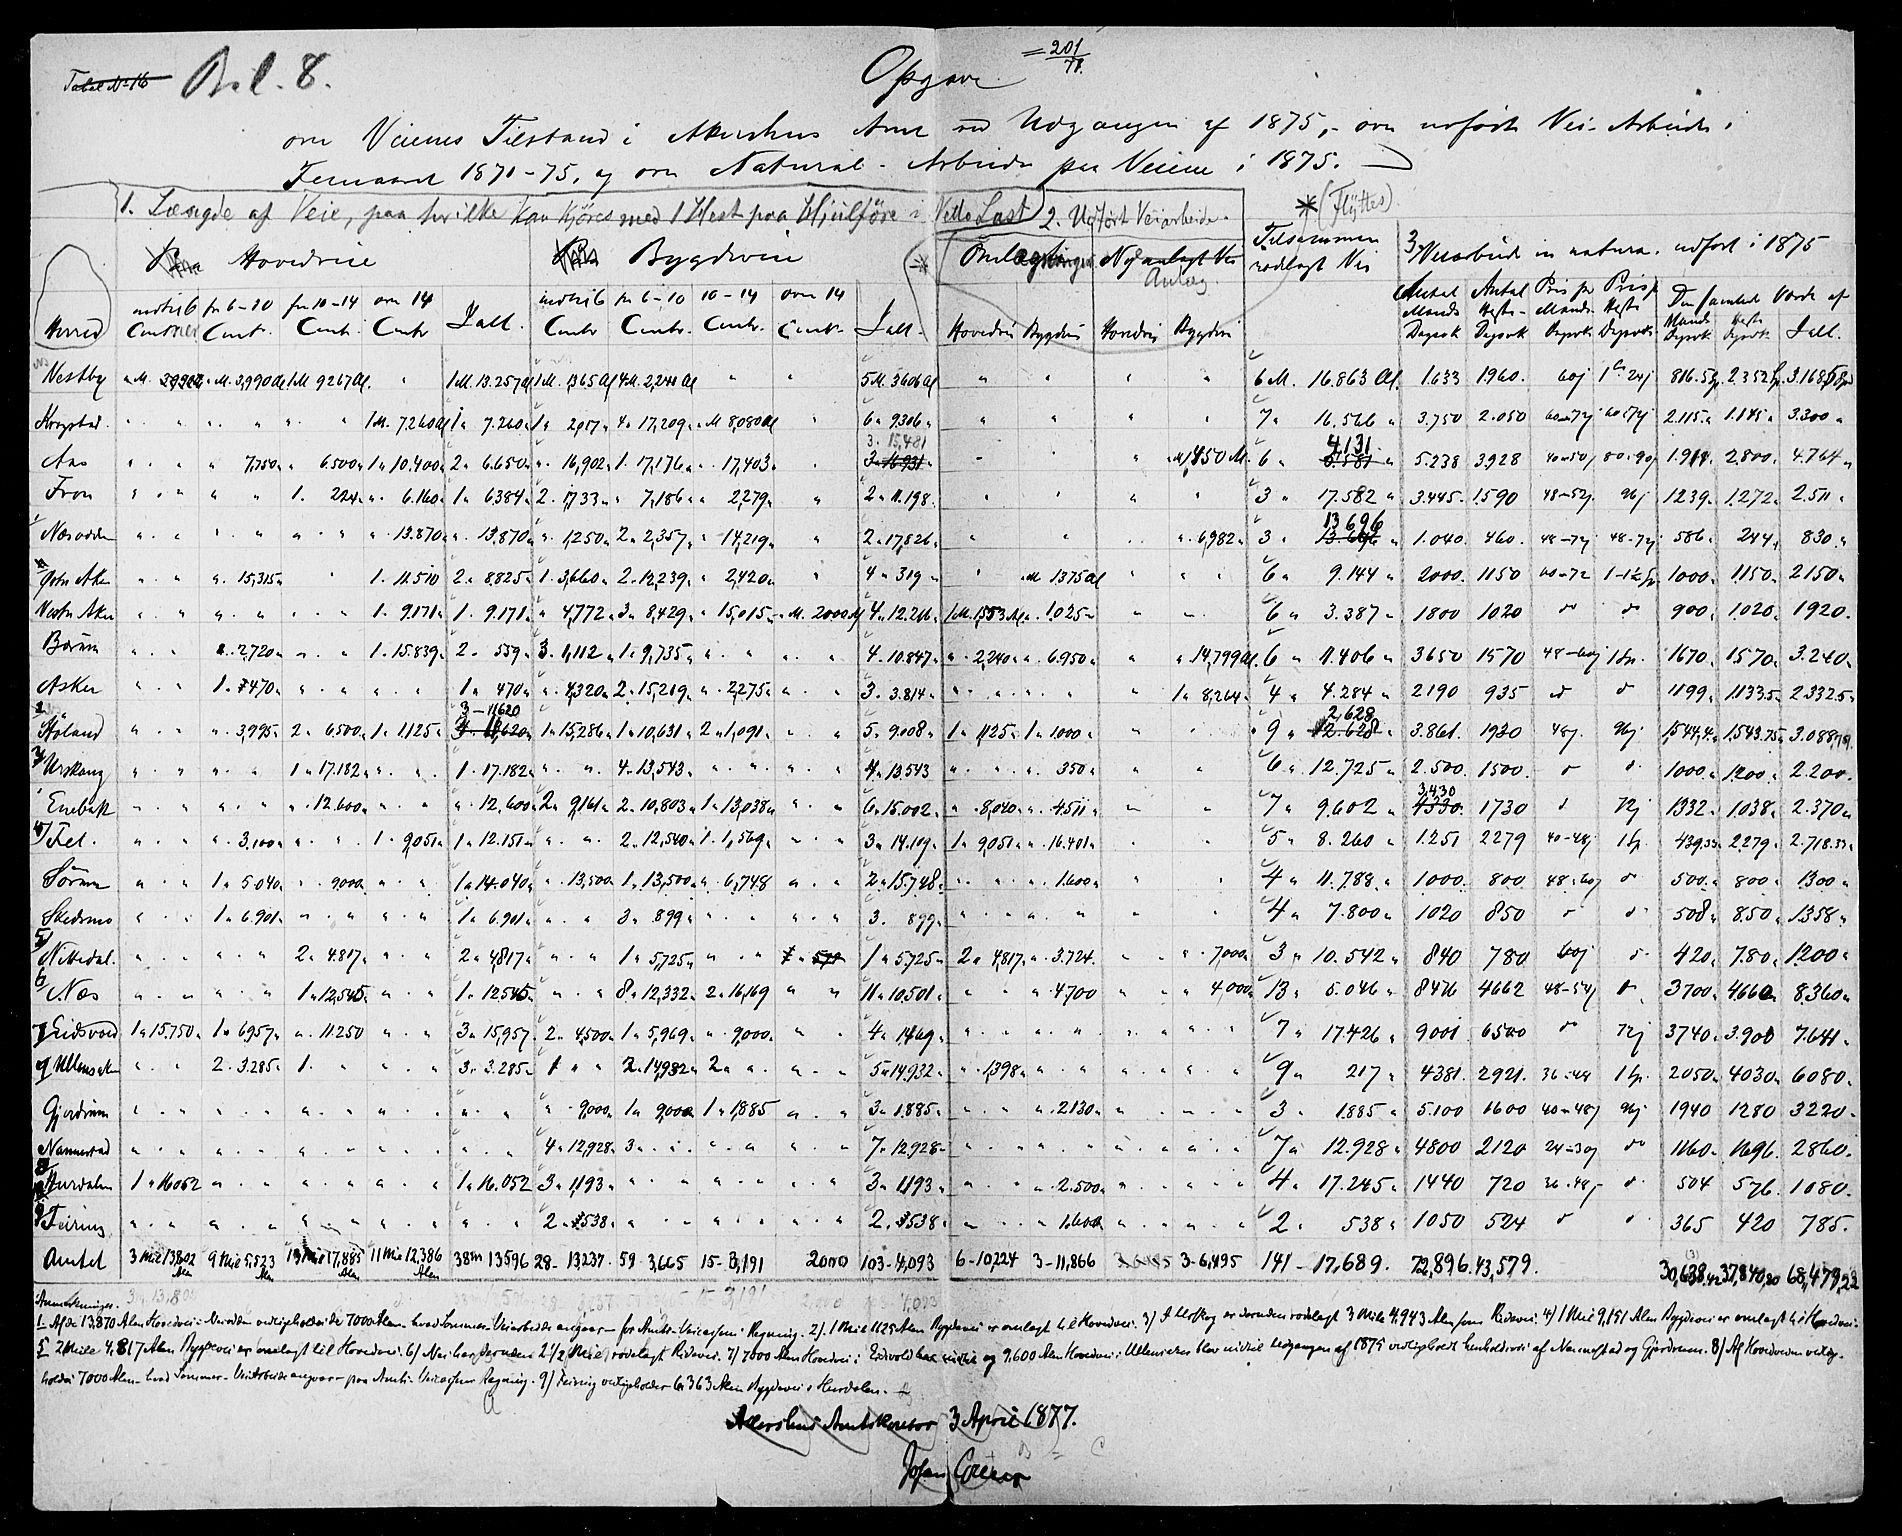 Tabel No 16
Bil. 8.
Opgave
= 201/77.
om Veienes Tilstand i Akershus Amt ved Udgangen af 1875, - om udført Vei-Arbeide i
Femaaret 1871-75, og om Natural-Arbeide paa Veiene i 1875.
1. Længde af Veie, paa hvilke kan kjøres med 1 Hest paa Hjulføre i Netto Last
2. Udført Veiarbeide.
* (Flyttes)
Hovedveie
Bygdeveie
Omlægninger
Nyanlagt Vei
Anlæg
Tilsammen rodelagt Vei
3. Veiarbeide in natura udført i 1875
Herred
indtil 6 Centner
fra 6-10 Cent.
fra 10-14 Centr.
over 14 Centr
Ialt.
indtil 6 Centr
fra 6-10 Centr.
10-14 Centr.
over 14 Centr.
Ialt.
Hovedvei Bygdevei Hovedvei Bygdevei
Antal Mands Dagsverk
Antal Heste- Dagsverk
Pris pr Mands- Dagsverk
Pris pr Heste Dagsverk
Den samlede Værdi af
Mands Dagsverk
Heste Dagsverk
Ialt.
Nestby " M. 3,990 Al. 1 M. 9267 Al. " 1 M. 13.257 Al 1 M. 1365 Al 4 M. 2,241 Al " " 5 M. 3606 Al " " " " 6 M. 16.863 Al. 1.633 1960. 60ß 816.5 2.352 3.168,5
Krogstad. " " " 1 M. 7260 Al 1 " 7.260 1 " 2,017 4 " 17,209 " M 8,080 Al " 6 " 9306 " " " " 7 " 16.566 " 3.750 2.050 60-72ß 2.115 1.185 3.300
Aas " " 7,750 " 6.500 1 " 10.400 2 " 6.650 " 16,902 1. 17,176 " 17,403 " 3. 15,481 3 " 16931 " " " M 1,450 Al. 6 " 4,131 5.581 5.238 3.928 40-50ß 80-90ß 2,800 4.764
Fron " " " 1. 224 " 6.160 1 " 6384 2. 1,733 " 7,186 " 2,279 " 2 " 11.198 " " " " 3 " 17.582 " 3.445. 1590 48-52ß 96ß 1239. 1.272 2.511
Næsodden " " " " 13.870 " 13.870 " 1,250 2 " 2,357 " 14,219 " 2 " 17,826 " " " " 6,982 3 " 13 696 1.040. 460. 48-72ß 48-72ß 586 244 830
Østre Aker " " " 15,315 " 1. 11.510 2 " 8.825 1. 3,660 2. 12,239 " 2,420 " 4 " 319 " " M 1375 Al " " 6 " 9.144 " 2000. 1150 60-72 1000 1150 2150
Vestre Aker " " " " 1. 9.171 1. 9.171 " 4,772 3 " 8,429 " 15,015 " M. 2000 Al 4 " 12.216 1 M. 1,553 Al " 1.025 " " 6 " 3.387 " 1800 1020 do do 900 1.020 1920.
Bærum " " " 2,720 " 1. 15.839 2 " 559 3. 1,112 1 " 9,735 " " 4. 10.847 " 2,240 " 6.950 " 14,799 Al. 6 " 11.406 " 3650 1570 48-60ß 1670 1570 3.240
Asker " " 1. 470 " " 1 " 470 " 4,320 2. 15,219 " 2,275 " 3. 3.814 " " " 1 " 8,264 4 " 4.284 " 2190 935 do do 1199 1133.5 2332.5
Høland " " " 3,995 2 " 6500 1 " 1125 3 - 11620 1 " 15,286 1 " 10,631 2 " 1,091 " 5 " 9.008 1 " 1,125 1 " 1000 " " 9 " 2,628 12.628 3.861. 1930 48ß. 96ß 1,544,4 1,543.75
Urskoug " " " " 1 " 17.182 " " 1. 17.182 " " 4. 13,543 " " 4 " 13.543 " " 350 " " 6 " 12.725 " 2.500. 1500. do do 1000 1200 2.200.
Enebak " " " " 12.600 " " 12.600 2 " 9,161 2. 10,803 1 " 13,038 " 6 " 15.002 " 8,040 " 4511 " " 7 " 9.602 " 3,430 4330. 1730 do 72ß 1332. 1.038 2.370
Fet. " " " 3,100 " " 1. 9,051 1 " 12.151 " " 2. 12,540 1. 1,569 " 3 " 14.109 1 " 9,051 " 16.401 " " 5 " 8.260 " 1.251 2279 40-48ß 439.33 2,279 2.718.33
Sørum " " 1 " 5.040 " 9000 " " 1 " 14.040 " 13,500 1. 13,500 " 6,748 " 2 " 15.748 " " 1.600 " " 4 " 11.788 " 1000. 800 48-60ß do 500 800 1300
Skedsmo " " 1 " 6.901 " " " " 1 " 6.901 " " 3 " 899 " " 3. 899 " " " " 4 " 7.800 1020 850 do do 508 850 1358
Nittedal. " " " " 2 " 4.817 " " 2 " 4,817 " " 1 " 5,725 " " 1 " 5,725 2 " 4,817 " 3.724 " " 7,000 3 " 10.542 " 840 780 60ß do 420 780 1200
Næs " " " " 1 " 12,545 " " 1 " 12545 " " 8 " 12,332 2 " 16,169 " 11 " 10,501 " " 4,700 " " 4,000 13 " 5.046 " 8476 4662 48-54ß do 3700 4660 8,360
Eidsvold 1 " 15.750 1 " 6,957 " 11.250 " " 3 " 15,957 2 " 4,500 1 " 5,969 " 9,000 " 4 " 1,469 " " " " 7 " 17.426 " 9001 6500 do 72ß 3740 3.900 7.641
Ullensaker " " 2. 3.285 1. " " " 3 " 3.285 1 " " 2 " 14,932 2 " " " 5 " 14.932 " 1,398 " " " 9 " 217 " 4381. 2921. 36-48 2050 4030 6080
Gjerdrum " " " " " " " " " " " 9,000 1 " 9,000 1 " 1,885 " 3 " 1.885 " " 2130 " " 3 " 1.885 " 5.100 1600 40-48ß 96ß 1940 1280 3220
Nannestad " " " " " " " " " " 4 " 12,928 3 " " " " 7 " 12,928 " " " " 7 " 12.928 " 4800 2120 24-30ß do 1160 1696 2860
Hurdalen 1 " 16052 " " " " " " 1 " 16.052 3 " 1,193 " " " " " 3 " 1,193 " " 2.500 " " 4 " 17.245 1440 720 36-48ß do 504 576 1080
Feiring " " " " " " " " " " 2 " 538 " " " " " 2. 538 " " 1.600 " " 2 " 538 " 1050 524 do do 365 420 785.
Amtet 3 Mile 13,802 Alen 9 Mile 5,523 Alen 13 Mile 17,885 Alen 11 Mile 12,386 Alen 38 m 13596 28 - 13237 59 - 3,665 15 - 3,191 2000 103 - 4,093 6 - 10,224 3 - 11,866 3 - 6,495 141 - 17,689. 72,896. 43,579. 30,638.42 37,840,80 68,479,22
Anmærkninger.
1. Af de 13,870 Alen Hovedvei i Næsodden vedligeholdes de 7000 Alen - hvad Sommer-Veiarbeide angaar - for Amts-Veicassens Regning. 2). 1 Mil 1125 Alen Bygdevei er omlagt til Hovedvei. 3) I Urskog er desuden rodelagt 3 Mile 4,943 Alen som Ridevei. 4) 1 Mil 9,151 Alen Bygdevei er omlagt til Hovedvei.
5 2 Mile 4,817 Alen Bygdevei er omlagt til Hovedvei. 6) Næs har desuden 2 1/2 Mile rodelagt Ridevei. 7) 7000 Alen Hovedvei i Eidsvold og 9,600 Alen Hovedvei i Ullensaker blev indtil Udgangen af 1875 vedligeholdt henholdsvis af Nannestad og Gjerdrum. 8) Af Hovedveien vedlige-
holdes 7000 Alen - hvad Sommer-Veiarbeide angaar - paa Amts-Veicassens Regning. 9) Feiring vedligeholder 6,363 Alen Bygdevei i Hurdalen.
Akershus Amtskontor 3 April 1877.
Johan